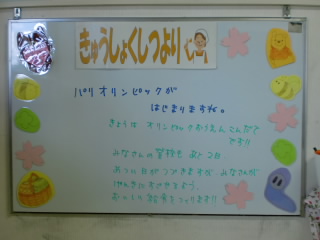 きゅうしょくしつより
パリオリンピックが
はじまりますね。
きょうは オリンピックおうえん こんだて
です!!
みなさんの 登校も あと 2日
あつい日が つづきますが みなさんが
げんきに すごせるよう、
おいしい 給食をつくります!!